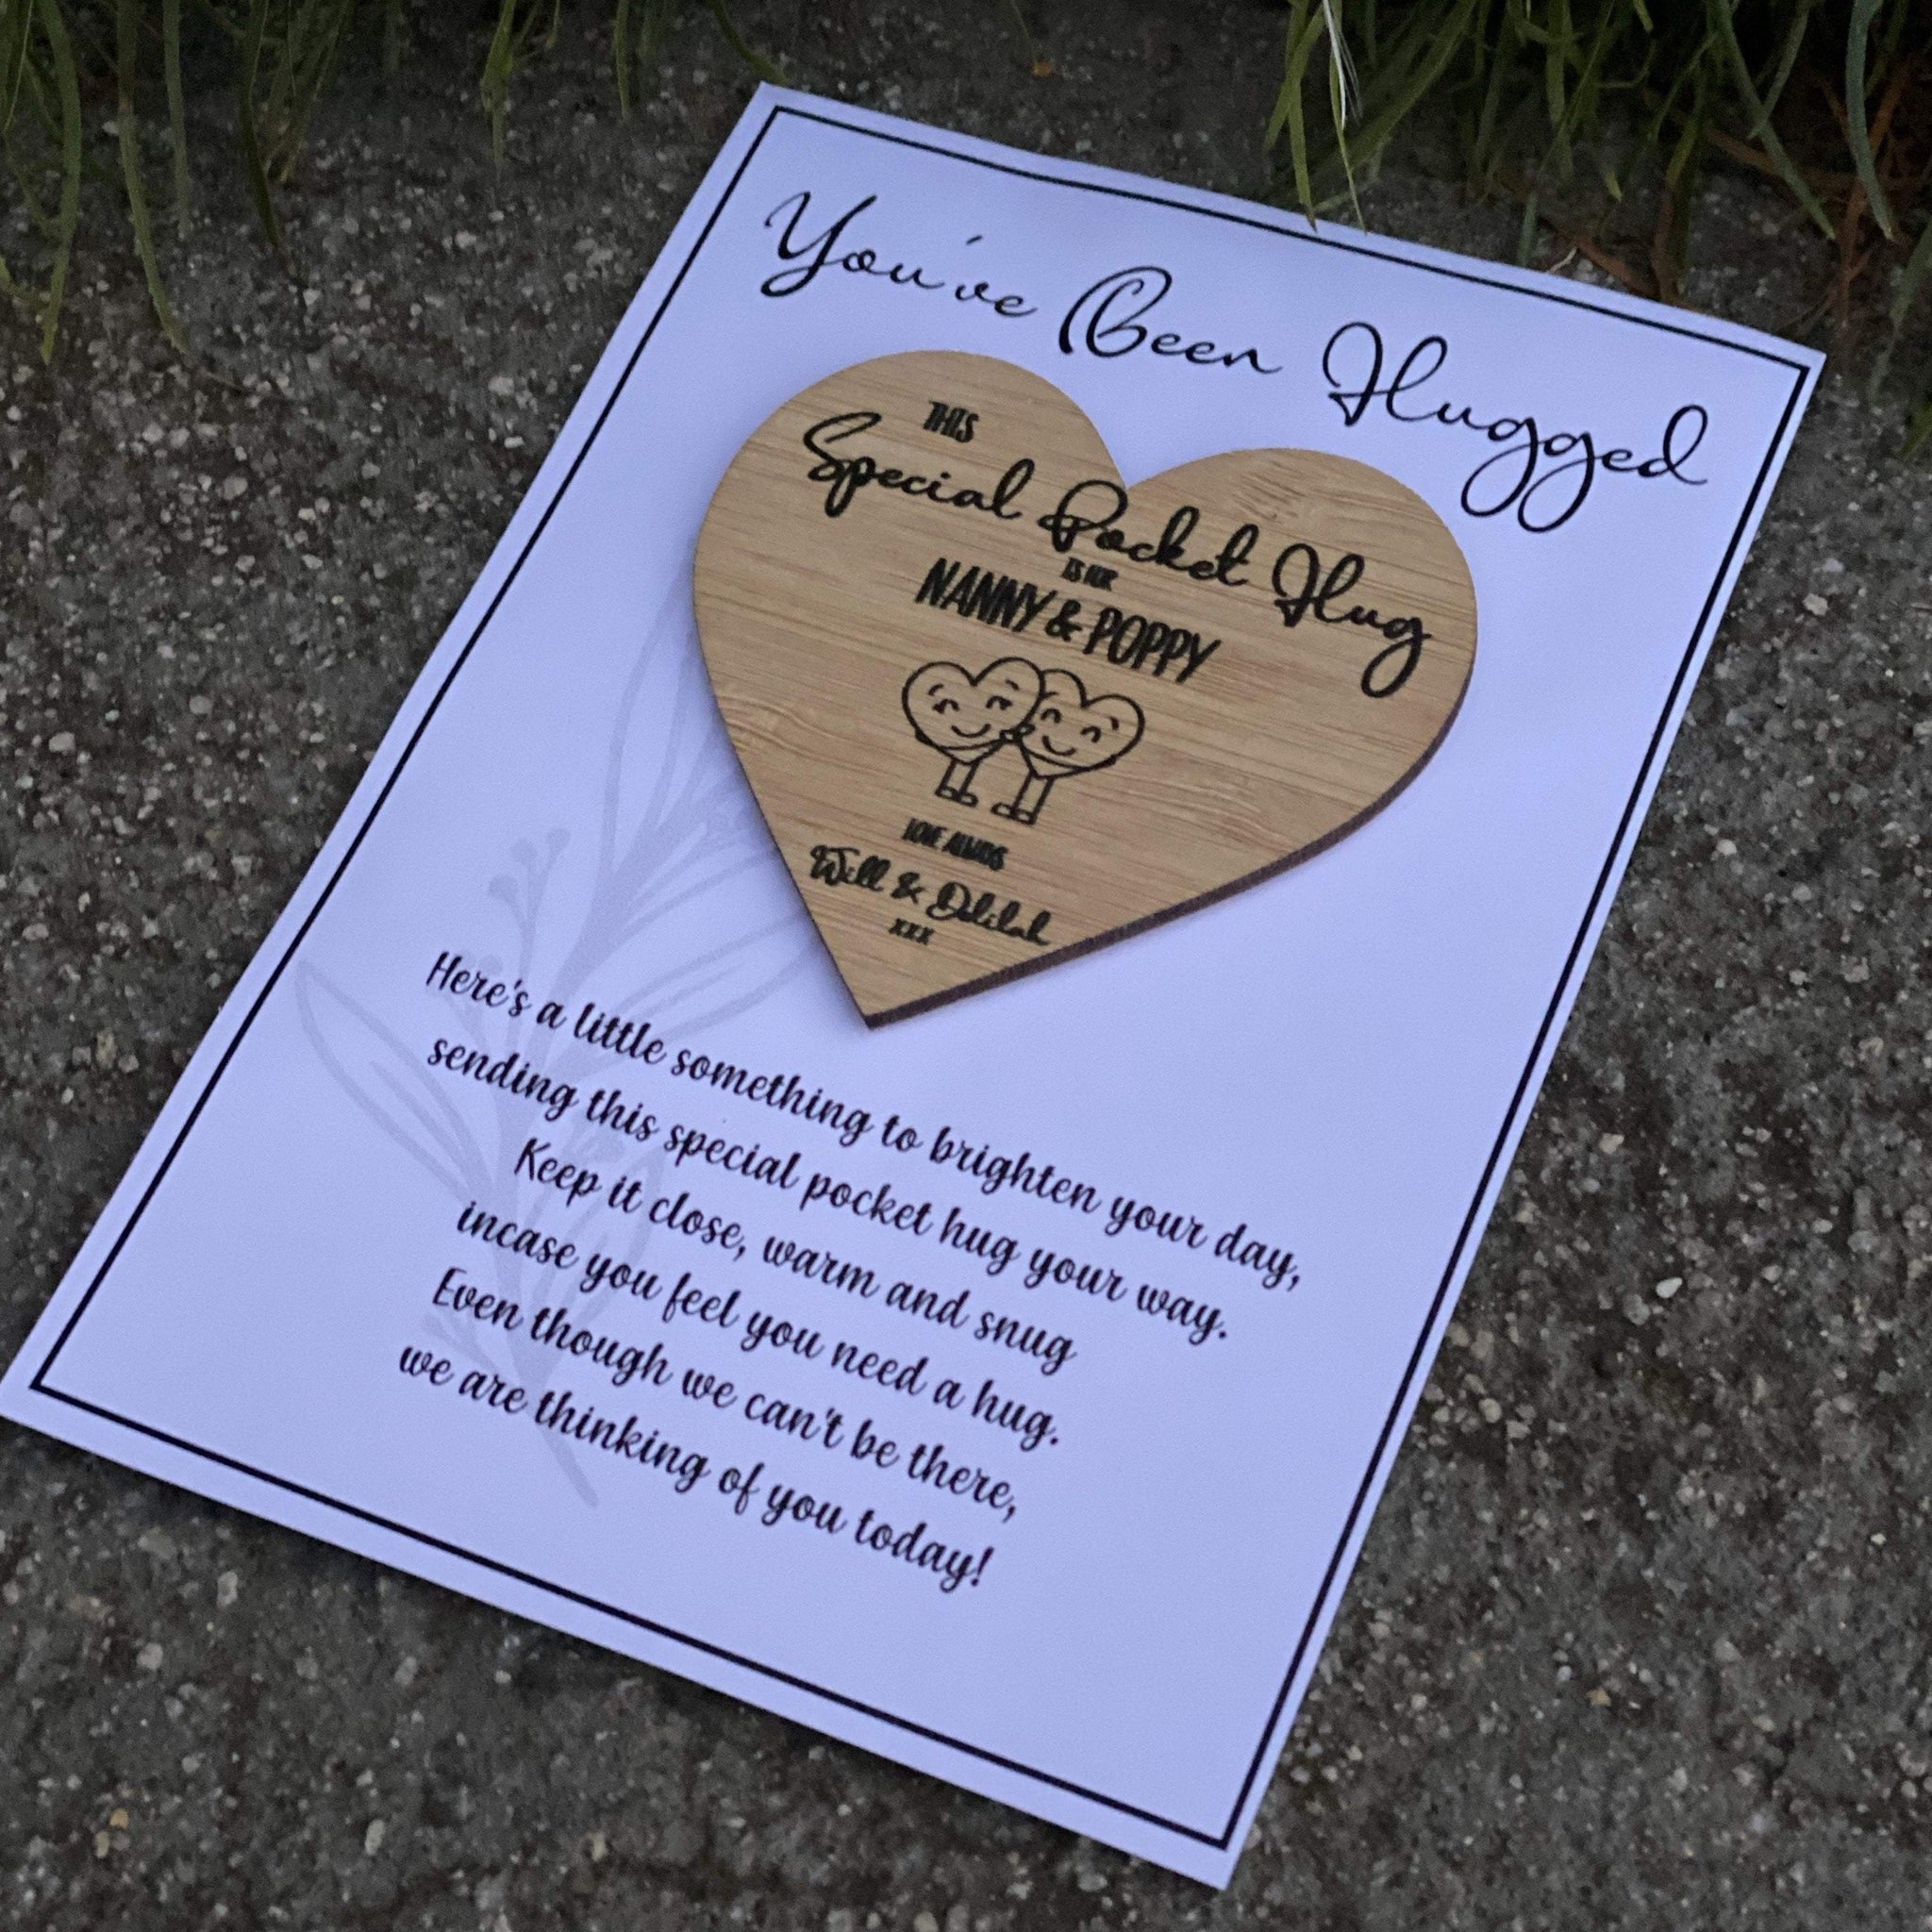 You've Been Hugged
THIS
Special Pocket Hug
IS FOR
NANNY & POPPY
LOVE ALWAYS
Will & Delilah
xxx
Here's a little something to brighten your day,
sending this special pocket hug your way.
Keep it close, warm and snug
incase you feel you need a hug.
Even though we can't be there,
we are thinking of you today!